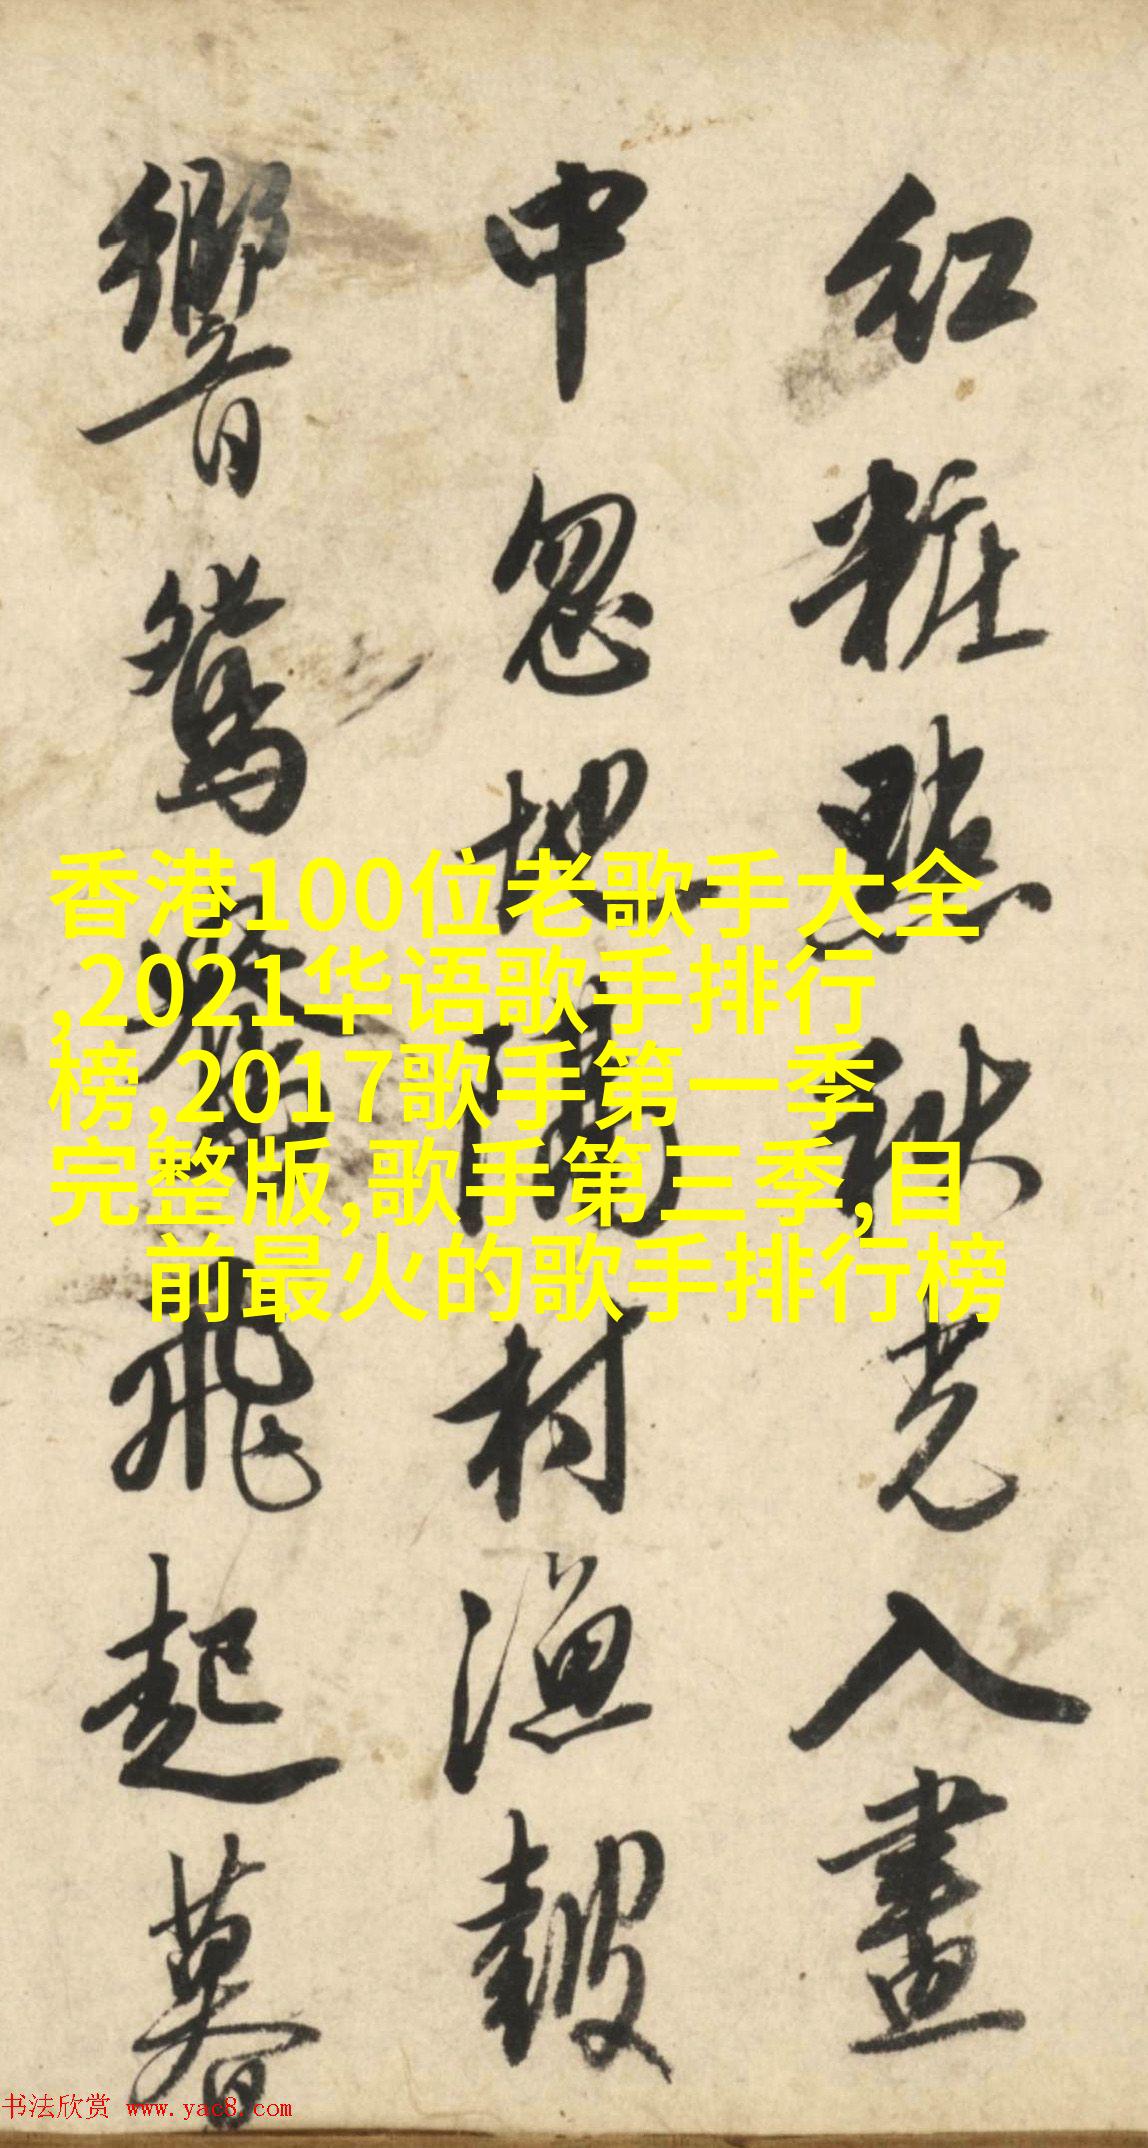 紅粧點秋光入畫
中忽地隔村漁鼓
響鴛鴦飛起暮
香港100位老歌手大全
,2021华语歌手排行
榜,2017歌手第一季
完整版,歌手第三季,目
前最火的歌手排行榜
书法欣赏 www.yac8.com